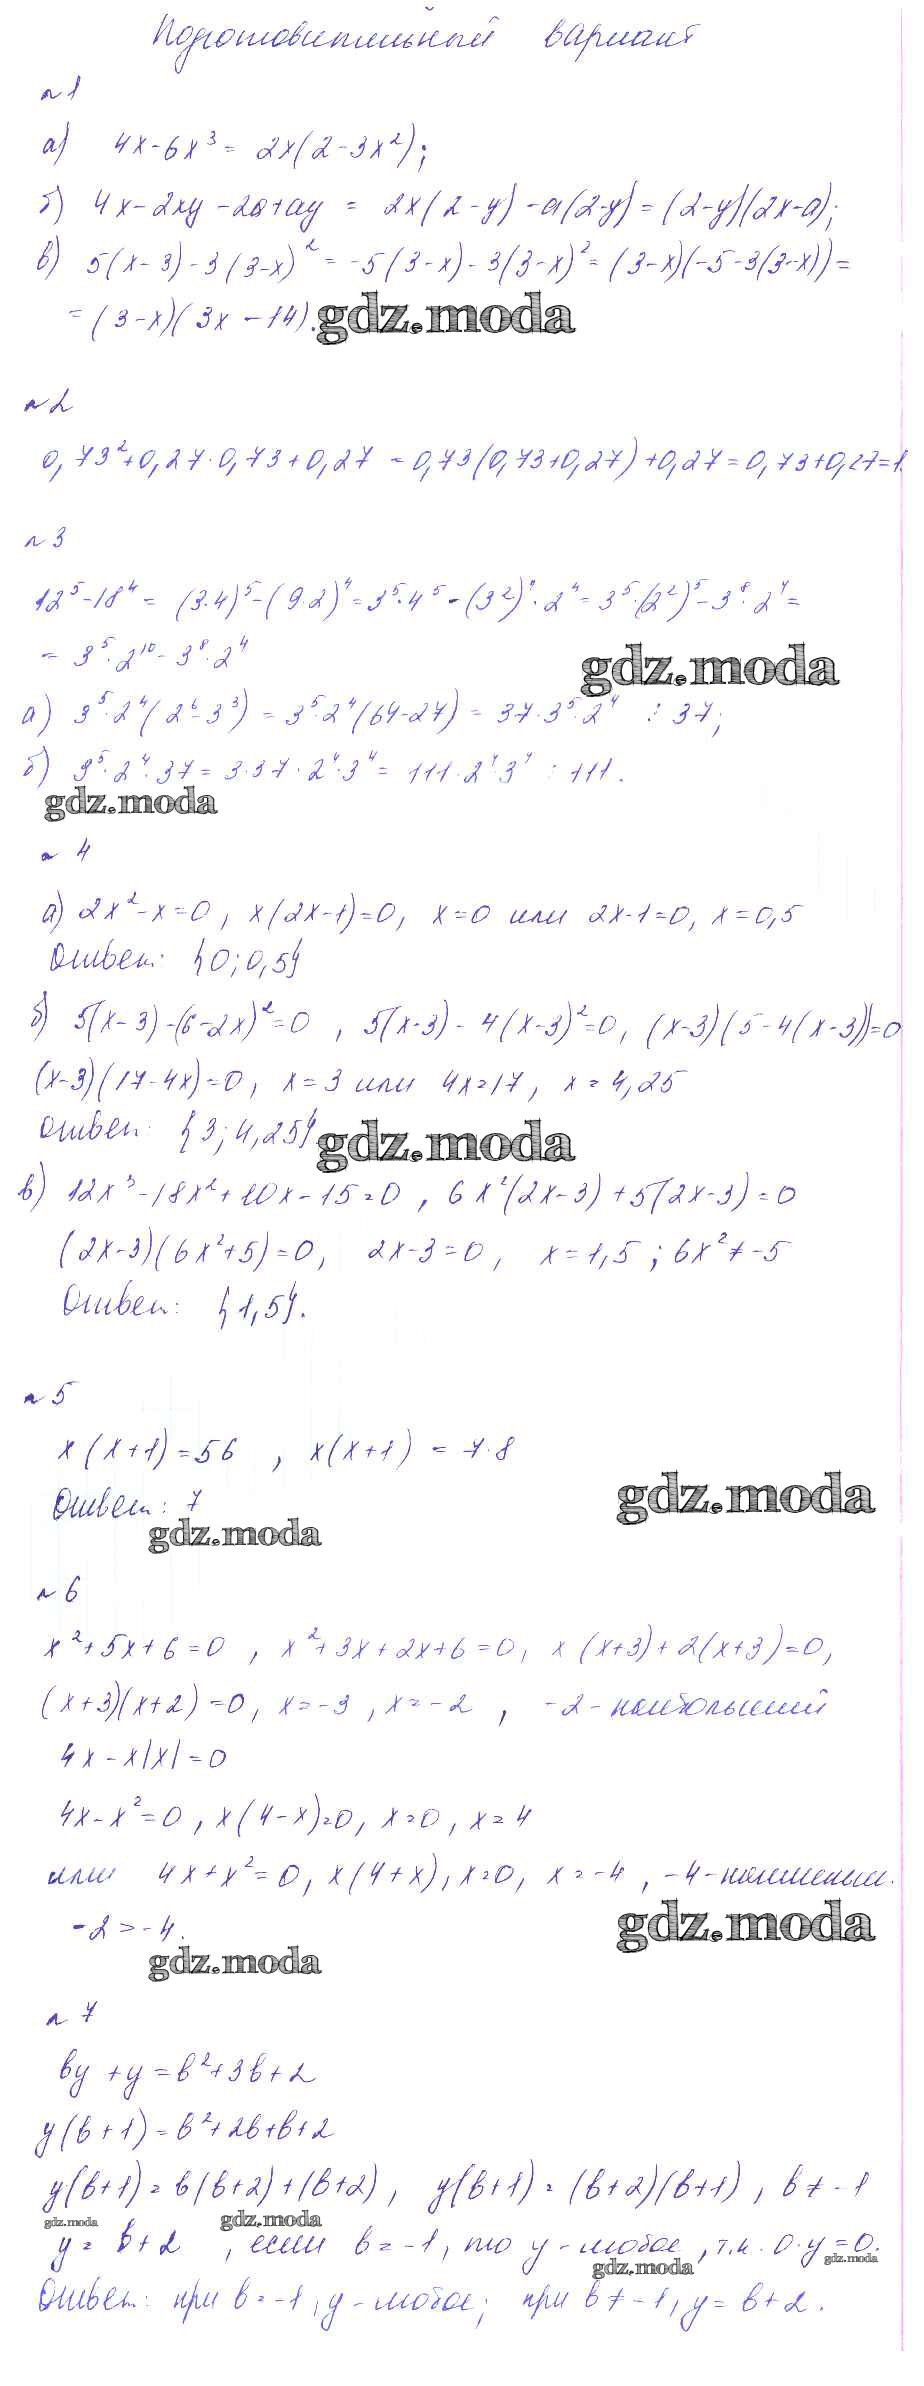 Подготовительный вариант
№1
а) 4x-6x³ = 2x(2-3x²);
б) 4x-2xy-2a+ay = 2x(2-y)-a(2-y)=(2-y)(2x-a);
в) 5(x-3)-3(3-x)² = -5(3-x)-3(3-x)²=(3-x)(-5-3(3-x))=
=(3-x)(3x-14).
gdz.moda
№2
0,73²+0,27·0,73+0,27 = 0,73(0,73+0,27)+0,27=0,73+0,27=1.
№3
12⁵-18⁴ = (3·4)⁵-(9·2)⁴=3⁵·4⁵-(3²)⁴·2⁴=3⁵·(2²)⁵-3⁸·2⁴=
= 3⁵·2¹⁰-3⁸·2⁴
gdz.moda
а) 3⁵·2⁴(2⁶-3³) = 3⁵·2⁴(64-27) = 37·3⁵·2⁴ ⋮ 37;
б) 3⁵·2⁴·37 = 3·37·2⁴·3⁴ = 111·2⁴·3⁴ ⋮ 111.
gdz.moda
№4
а) 2x²-x=0, x(2x-1)=0, x=0 или 2x-1=0, x=0,5
Ответ: {0;0,5}
б) 5(x-3)-(6-2x)²=0, 5(x-3)-4(x-3)²=0, (x-3)(5-4(x-3))=0
(x-3)(17-4x)=0, x=3 или 4x=17, x=4,25
Ответ: {3;4,25}
gdz.moda
в) 12x³-18x²+10x-15=0, 6x²(2x-3)+5(2x-3)=0
(2x-3)(6x²+5)=0, 2x-3=0, x=1,5; 6x²≠-5
Ответ: {1,5}.
№5
x(x+1)=56, x(x+1)=7·8
Ответ: 7
gdz.moda
gdz.moda
№6
x²+5x+6=0, x²+3x+2x+6=0, x(x+3)+2(x+3)=0,
(x+3)(x+2)=0, x=-3, x=-2, -2-наибольший
4x-x|x|=0
4x-x²=0, x(4-x)=0, x=0, x=4
или 4x+x²=0, x(4+x), x=0, x=-4, -4-наименьш.
-2>-4.
gdz.moda
gdz.moda
№7
by+y=b²+3b+2
y(b+1)=b²+2b+b+2
y(b+1)=b(b+2)+(b+2), y(b+1)=(b+2)(b+1), b≠-1
gdz.moda gdz.moda
y=b+2, если b=-1, то y-любое, т.к. 0·y=0.
gdz.moda gdz.moda
Ответ: при b=-1, y-любое; при b≠-1, y=b+2.